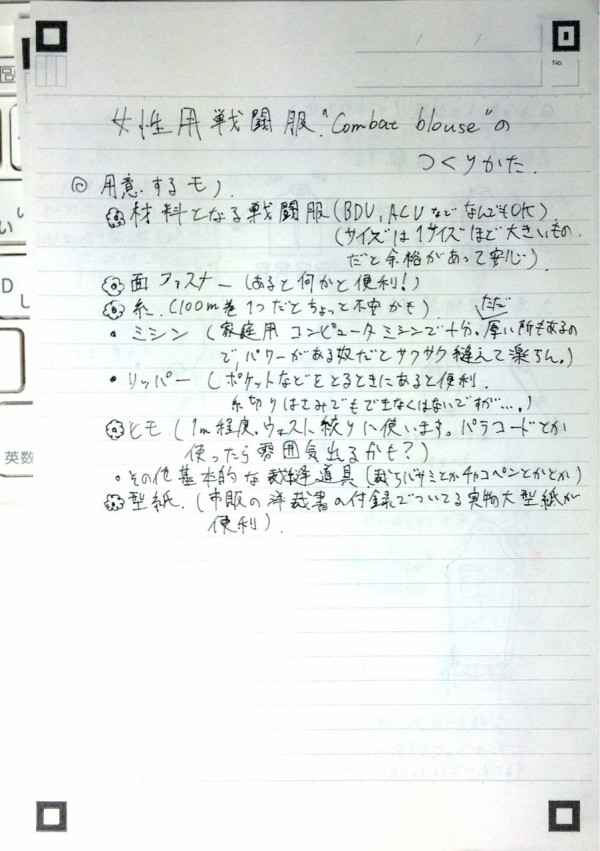 No.
女性用戦闘服"Combat blouse"の
つくりかた.
◎ 用意するモノ
材料となる戦闘服(BDU,ACUなどなんでもOK)
(サイズは1サイズほど大きいもの
だと余裕があって安心)
面ファスナー(あると何かと便利!)
糸.(100m巻1つだとちょっと不安かも)
ただ
・ミシン(家庭用コンピュータミシンで十分。厚い所もあるの
で、パワーがある奴だとサクサク縫えて楽ちん。)
・リッパー(ポケットなどをとるときにあると便利.
糸切りはさみでもできなくはないですが…。)
ヒモ(1m程度。ウェストに絞りに使います。パラコードとか
使ったら雰囲気出るかも?)
・その他基本的な裁縫道具(裁ちバサミとかチャコペンとかとか)
型紙.(市販の洋裁書の付録でついてる実物大型紙が
便利).
英数